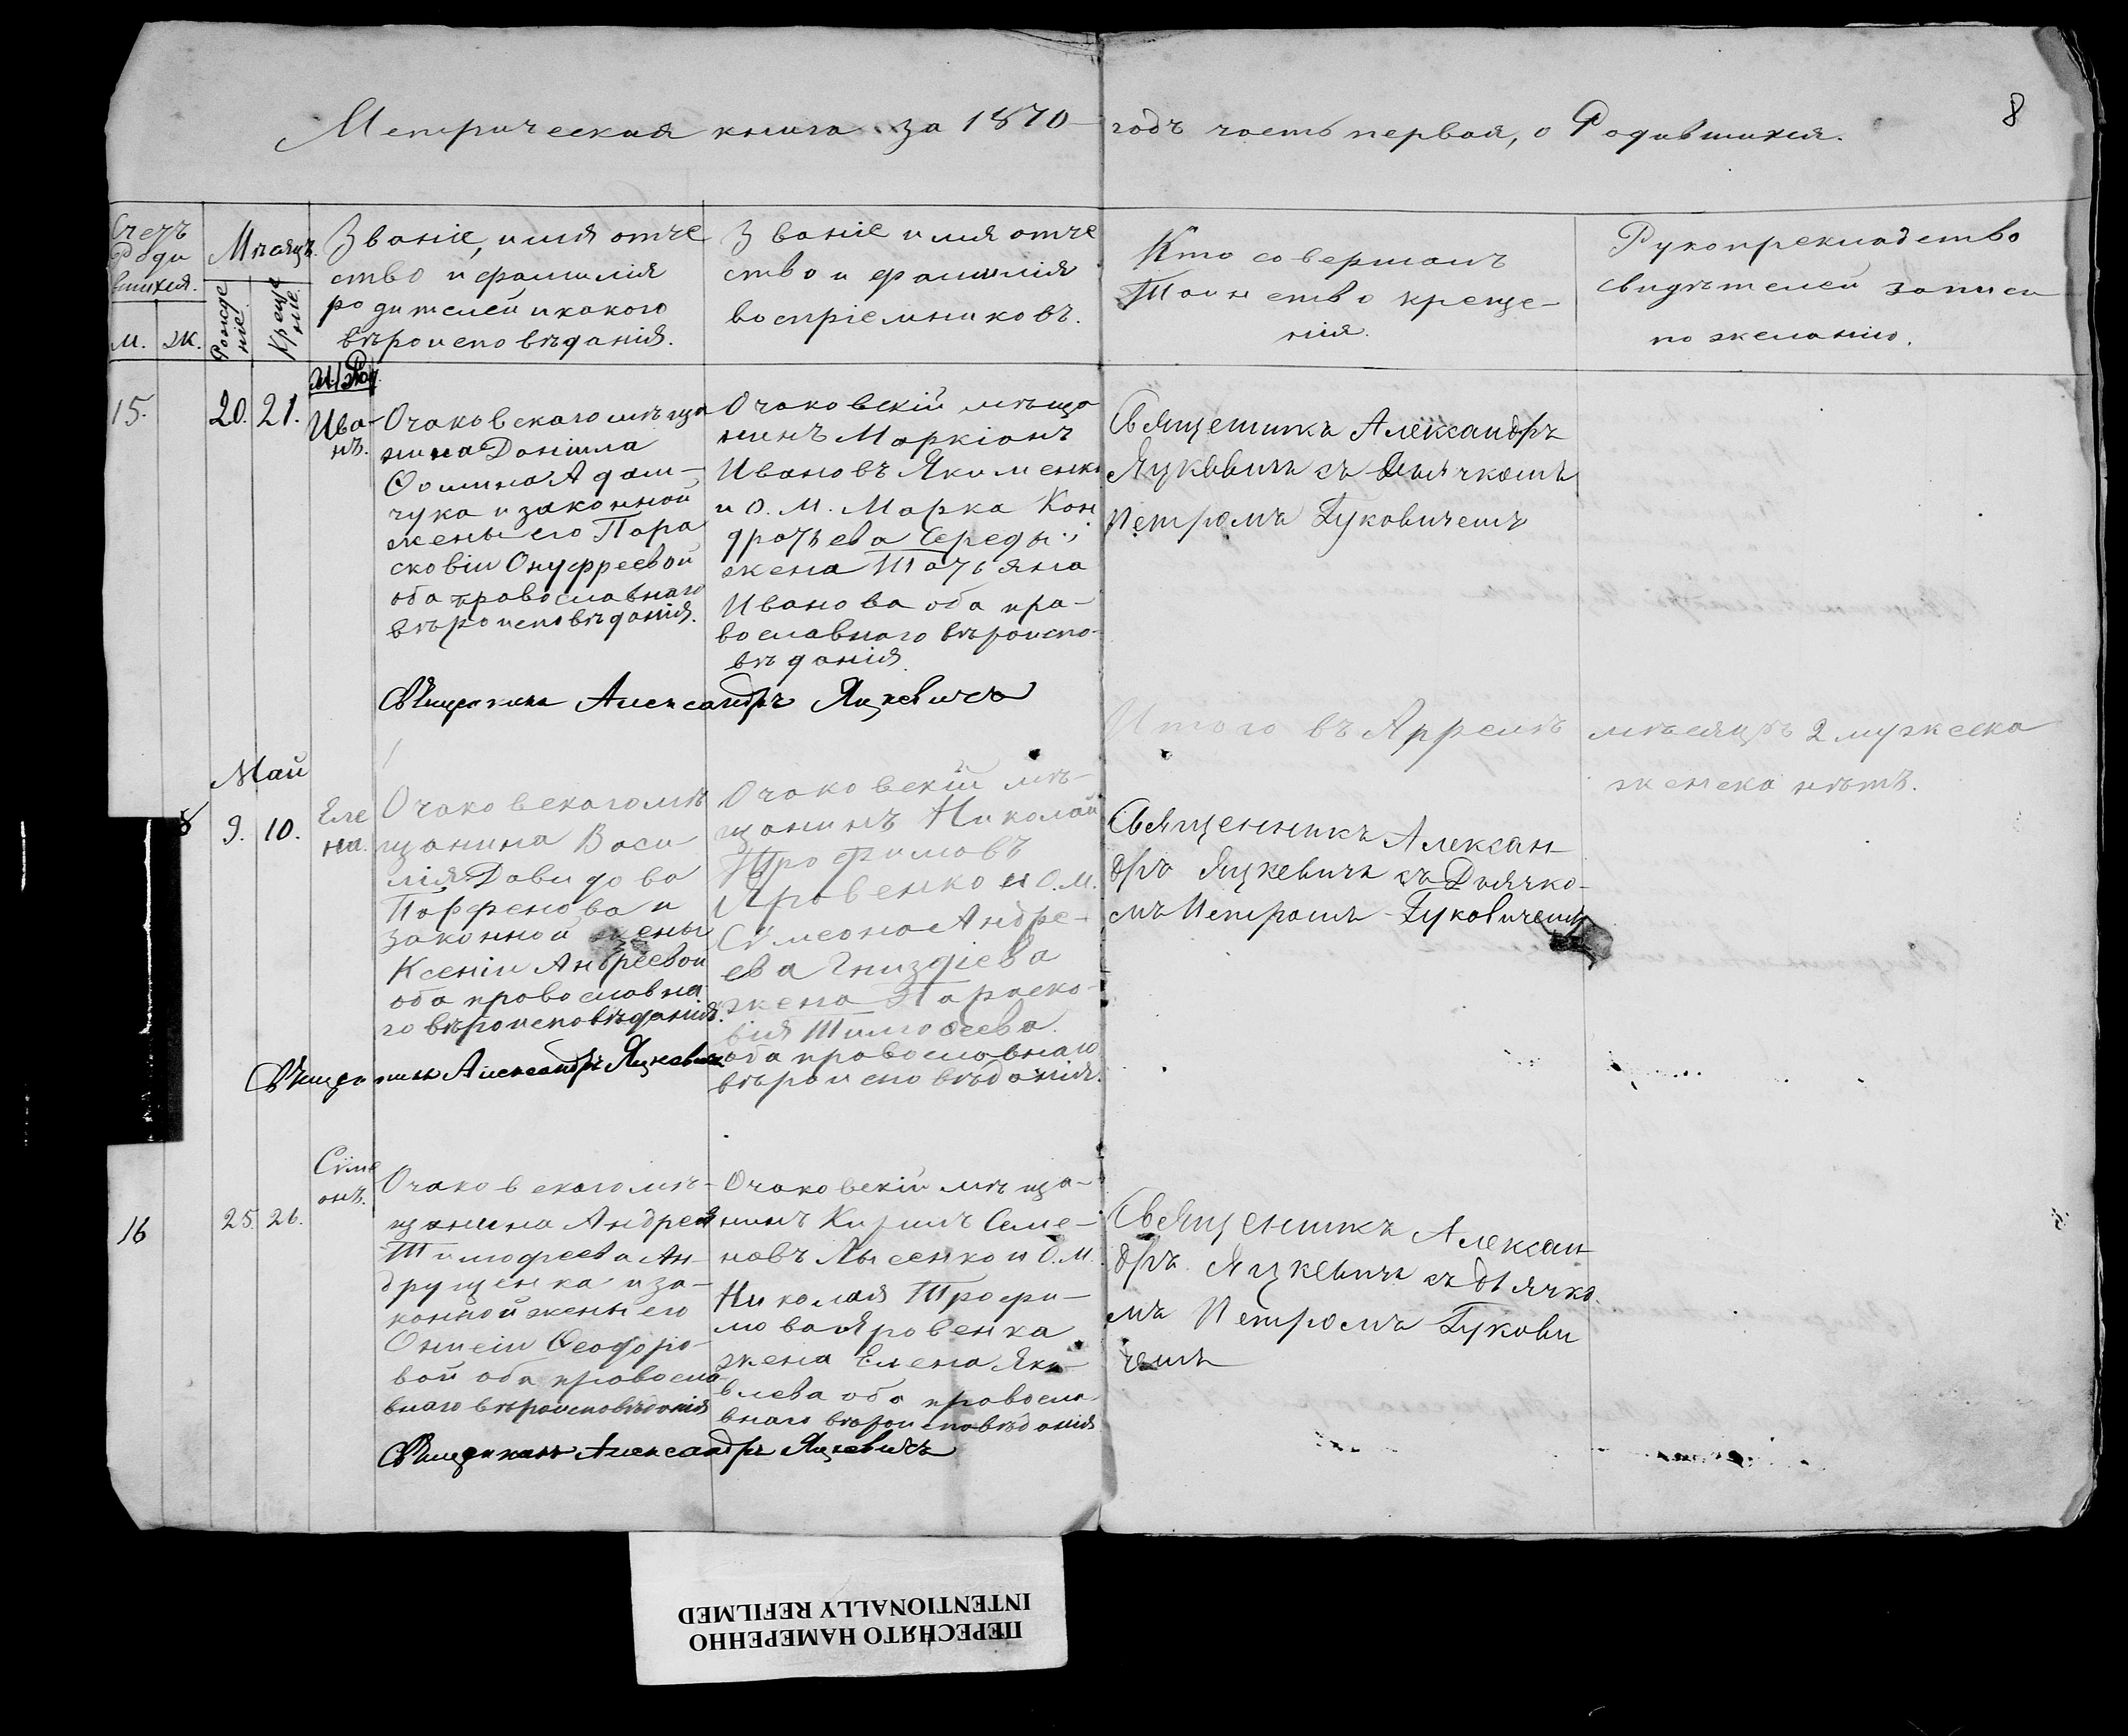 Метрическая книга за 1870 годъ часть первая, о Родившихся.
8
Счетъ
Роди
вшихся.
м. ж.
Мѣсяцъ.
Рожде
ніе.
Креще
ніе.
Званіе, имя отче
ство и фамилія
родителей и какого
вѣроисповѣданія.
Званіе имя отче
ство и фамилія
воспріемниковъ.
Кто совершалъ
Таинство креще-
нія.
Рукоприкладство
свидѣтелей записи
по желанію.
15.
20. 21.
Ива-
нъ.
Очаковскаго мѣща
нина Даніила
Ѳомина Адам-
чука и законной
жены его Пара
сковіи Онуфреевой
оба православнаго
вѣроисповѣданія.
Очаковскій мѣща
нинъ Маркіанъ
Ивановъ Якименко
и О. М. Марка Кон
дратьева Середы
жена Татьяна
Иванова оба пра-
вославнаго вѣроиспо-
вѣданія.
Священникъ Александръ
Яцкевичъ съ Дьячкомъ
Петромъ Буковичемъ
Священникъ Александръ Яцкевичъ
Итого въ Апрелѣ мѣсяцѣ 2 мужеска
женска нѣтъ.
Май
9. 10.
Еле
на.
Очаковскаго мѣ
щанина Васи
лія Давидова
Парфенова и
законной жены
Ксеніи Андреевой
оба православна
го вѣроисповѣданія.
Очаковскій мѣ-
щанинъ Николай
Трофимовъ
Яровенко и О. М.
Сѵмеона Андре-
ева Гниздіева
жена Параско-
вія Тимоѳеева
оба православнаго
вѣроисповѣданія.
Священникъ Алексан
дръ Яцкевичъ съ Дьячко-
мъ Петромъ Буковичемъ
Священникъ Александръ Яцкевичъ
16
25. 26.
Сѵме
онъ.
Очаковскаго мѣ-
щанина Андрея
Тимофеева Ан-
друщенка и за-
конной жены его
Онисіи Ѳеодоро-
вой оба правосла
внаго вѣроисповѣданія
Очаковскій мѣща-
нинъ Кирилъ Семе-
новъ Лысенко и О. М.
Николая Трофи-
мова Яровенка
жена Елена Яко-
влева оба правосла
внаго вѣроисповѣданія
Священникъ Алексан
дръ Яцкевичъ съ дьячко
мъ Петромъ Букови
чемъ
Священникъ Александръ Яцкевичъ
ПЕРЕСНЯТО НАМЕРЕННО
INTENTIONALLY REFILMED